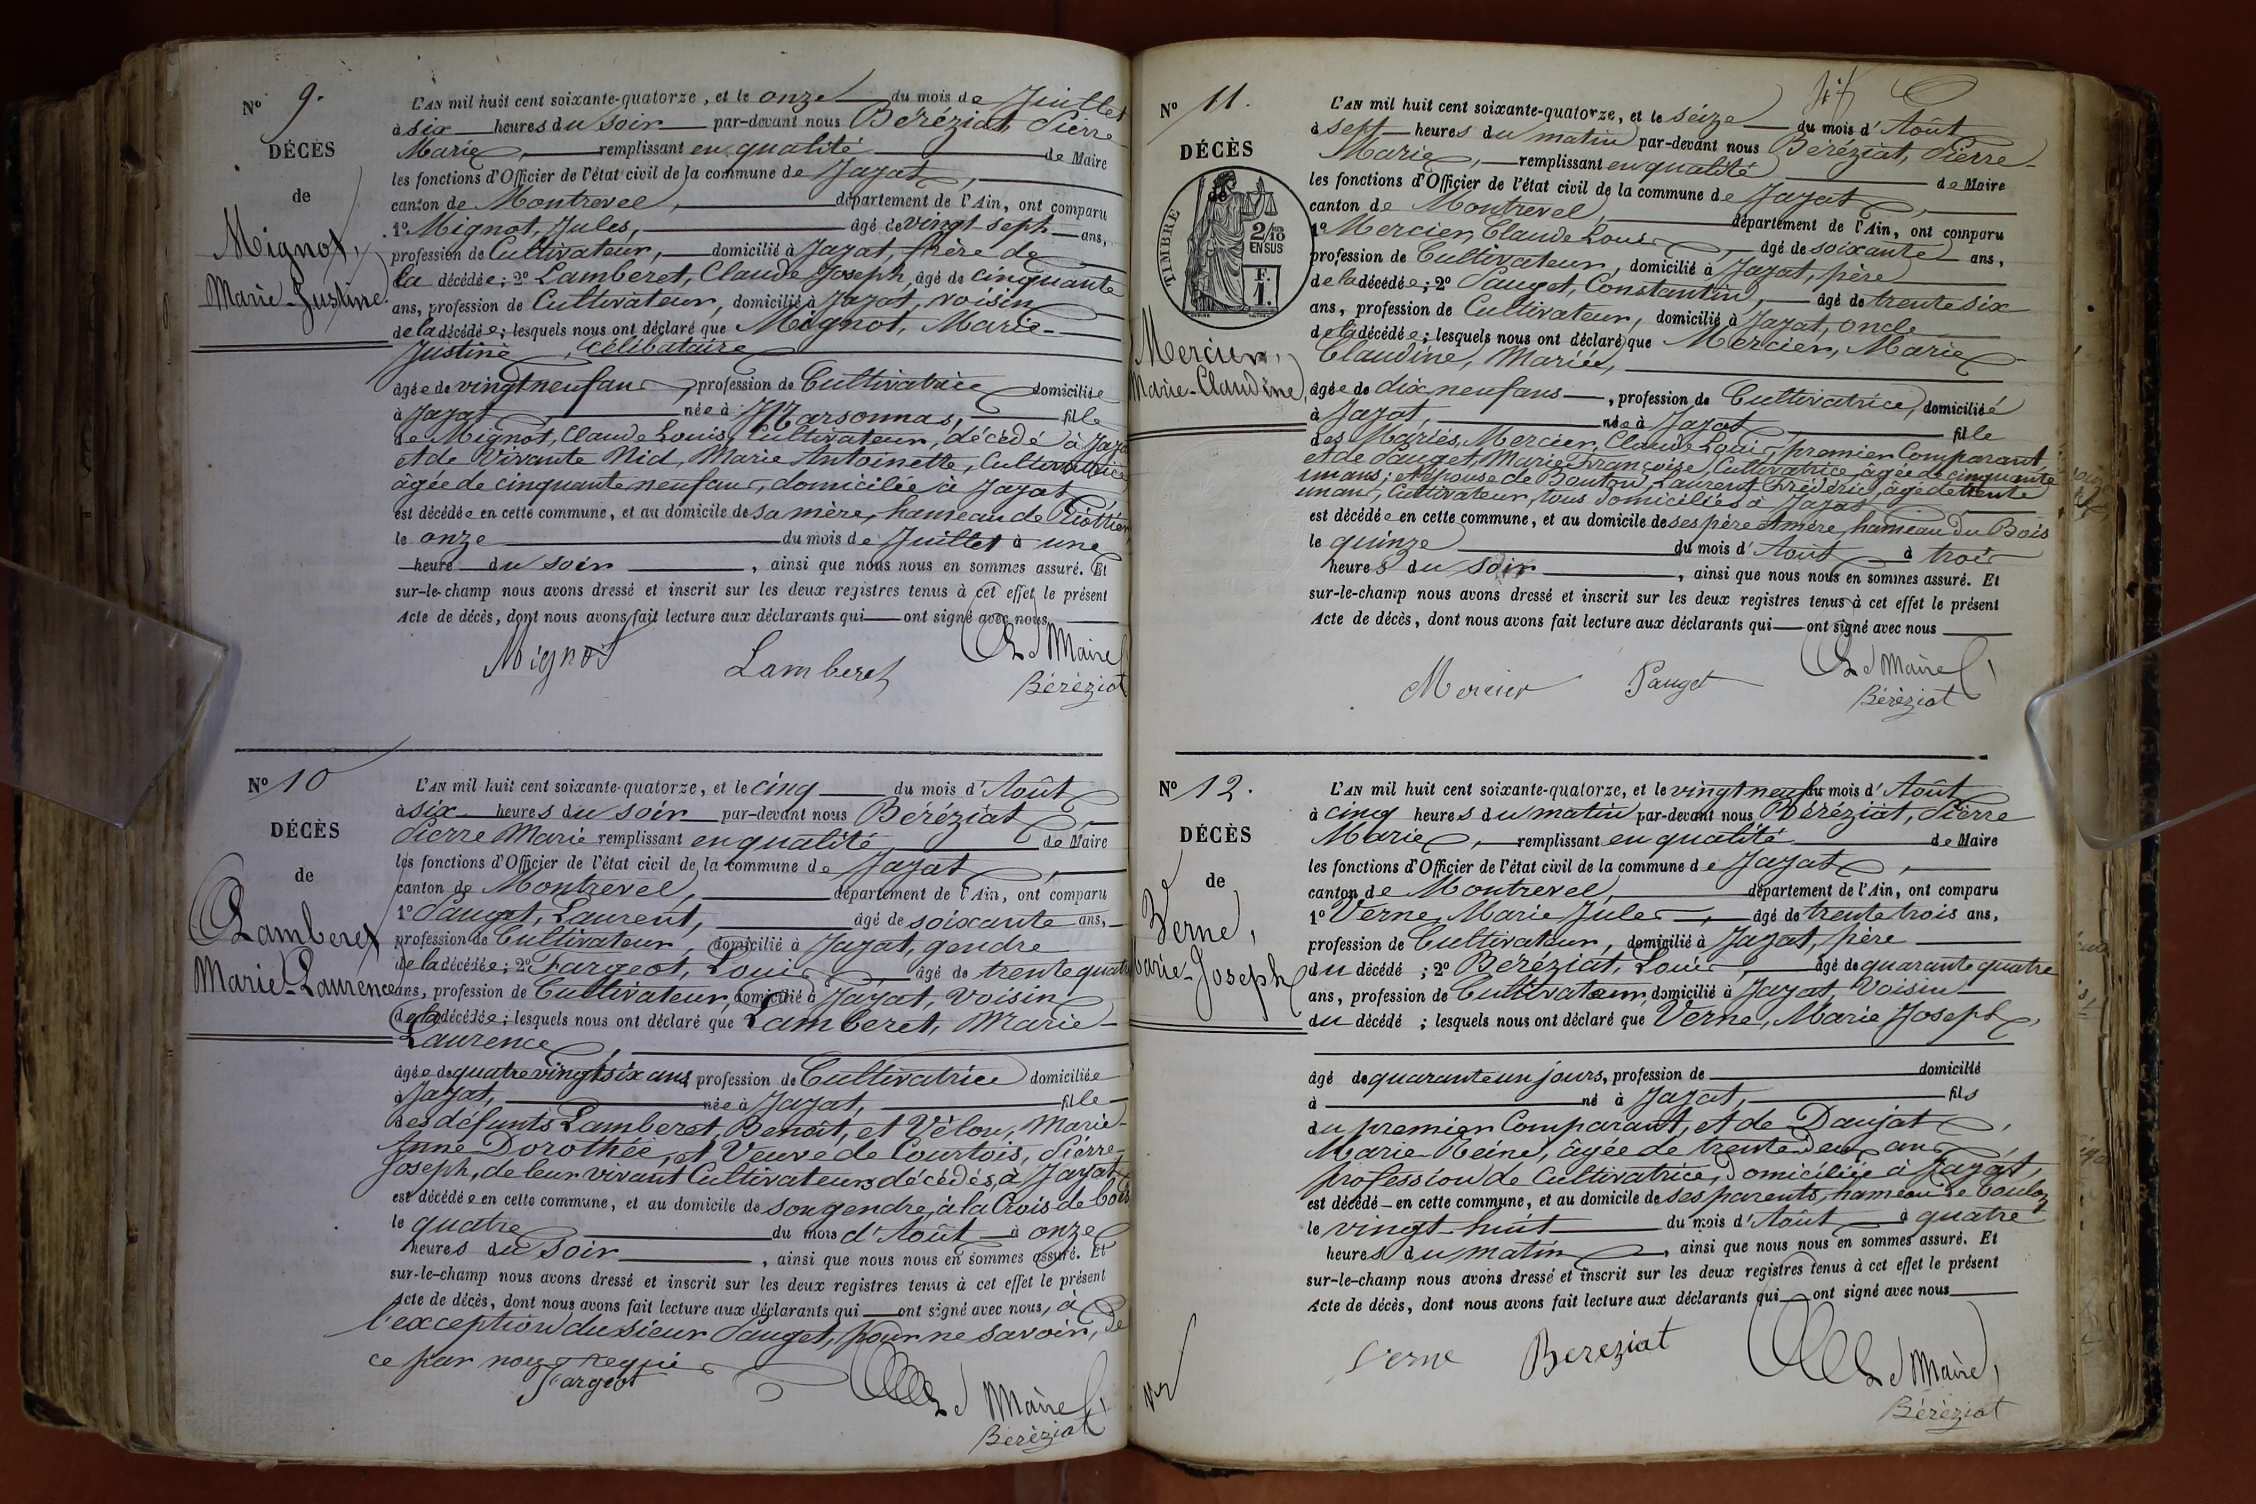 N° 9.
DÉCÈS
de
Mignot,
Marie-Justine.
L'AN mil huit cent soixante-quatorze, et le onze du mois de Juillet
à six heures du soir par-devant nous Béréziat Pierre
Marie, remplissant en qualité de Maire
les fonctions d'Officier de l'état civil de la commune de Jayat,
canton de Montrevel, département de l'Ain, ont comparu
1° Mignot, Jules, âgé de vingt sept ans,
profession de Cultivateur, domicilié à Jayat, frère de
la décédée; 2° Lamberet, Claude Joseph, âgé de cinquante
ans, profession de Cultivateur, domicilié à Jayat, voisin
de la décédée; lesquels nous ont déclaré que Mignot, Marie-
Justine, célibataire
âgée de vingt neuf ans, profession de Cultivatrice domiciliée
à Jayat née à Marsonnas, fille
de Mignot, Claude Louis, Cultivateur, décédé à Jayat
et de Vivante Nid, Marie Antoinette, Cultivatrice
âgée de cinquante neuf ans, domiciliée à Jayat
est décédée en cette commune, et au domicile de sa mère, hameau de
le onze du mois de Juillet à une
heure du soir, ainsi que nous nous en sommes assuré. Et
sur-le-champ nous avons dressé et inscrit sur les deux registres tenus à cet effet le présent
Acte de décès, dont nous avons fait lecture aux déclarants qui ont signé avec nous
Mignot Lamberet Le Maire
Béréziat
N° 10
DÉCÈS
de
Lamberet
Marie-Laurence
L'AN mil huit cent soixante-quatorze, et le cinq du mois d'Août
à six heures du soir par-devant nous Béréziat
Pierre Marie remplissant en qualité de Maire
les fonctions d'Officier de l'état civil de la commune de Jayat,
canton de Montrevel, département de l'Ain, ont comparu
1° Pauget, Laurent, âgé de soixante ans,
profession de Cultivateur, domicilié à Jayat, gendre
de la décédée; 2° Fargeot, Louis âgé de trente quatre
ans, profession de Cultivateur, domicilié à Jayat, voisin
de la décédée; lesquels nous ont déclaré que Lamberet, Marie-
Laurence,
âgée de quatre vingt six ans profession de Cultivatrice domiciliée
à Jayat, née à Jayat, fille
des défunts Lamberet, Benoit, et Vélon, Marie-
Anne Dorothée, et Veuve de Courtois, Pierre
Joseph, de leur vivant Cultivateurs décédés à Jayat
est décédée en cette commune, et au domicile de son gendre, à la Crois de bois
le quatre du mois d'Août à onze
heures du soir, ainsi que nous nous en sommes assuré. Et
sur-le-champ nous avons dressé et inscrit sur les deux registres tenus à cet effet le présent
Acte de décès, dont nous avons fait lecture aux déclarants qui ont signé avec nous, à
l'exception du sieur Pauget, pour ne savoir, de
ce par nous requis
Fargeot
Le Maire
Béréziat
N° 11.
DÉCÈS
de
TIMBRE
2/10
EN SUS
F.
1.
Mercier,
Marie-Claudine,
L'AN mil huit cent soixante-quatorze, et le seize du mois d'Août
à sept heures du matin par-devant nous Béréziat, Pierre
Marie, remplissant en qualité de Maire
les fonctions d'Officier de l'état civil de la commune de Jayat,
canton de Montrevel, département de l'Ain, ont comparu
1° Mercier, Claude Louis, âgé de soixante ans,
profession de Cultivateur, domicilié à Jayat, père
de la décédée; 2° Pauget, Constantin, âgé de trente six
ans, profession de Cultivateur, domicilié à Jayat, oncle
de la décédée; lesquels nous ont déclaré que Mercier, Marie
Claudine, Mariée,
âgée de dix neuf ans, profession de Cultivatrice, domiciliée
à Jayat, née à Jayat fille
des Mariés, Mercier, Claude Louis, premier Comparant
et de Pauget, Marie Françoise, Cultivatrice, âgée de cinquante
un ans; et épouse de Bouton, Laurent Frédéric, âgé de trente
un ans, Cultivateur, tous domiciliés à Jayat
est décédée en cette commune, et au domicile de ses père et mère, hameau du Bois
le quinze du mois d'Août à trois
heures du soir, ainsi que nous nous en sommes assuré. Et
sur-le-champ nous avons dressé et inscrit sur les deux registres tenus à cet effet le présent
Acte de décès, dont nous avons fait lecture aux déclarants qui ont signé avec nous
Mercier Pauget Le Maire
Béréziat
N° 12.
DÉCÈS
de
Verne,
Marie-Joseph
L'AN mil huit cent soixante-quatorze, et le vingt neuf du mois d'Août
à cinq heures du matin par-devant nous Béréziat, Pierre
Marie, remplissant en qualité de Maire
les fonctions d'Officier de l'état civil de la commune de Jayat,
canton de Montrevel, département de l'Ain, ont comparu
1° Verne, Marie Jules, âgé de trente trois ans,
profession de Cultivateur, domicilié à Jayat, père
du décédé; 2° Béréziat, Louis, âgé de quarante quatre
ans, profession de Cultivateur, domicilié à Jayat, Voisin
du décédé; lesquels nous ont déclaré que Verne, Marie Joseph,
âgé de quarante un jours, profession de domicilié
à né à Jayat, fils
du premier Comparant, et de Daujat,
Marie-Reine, âgée de trente deux ans,
profession de Cultivatrice, domiciliée à Jayat,
est décédé en cette commune, et au domicile de ses parents, hameau de
le vingt-huit du mois d'Août à quatre
heures du matin, ainsi que nous nous en sommes assuré. Et
sur-le-champ nous avons dressé et inscrit sur les deux registres tenus à cet effet le présent
Acte de décès, dont nous avons fait lecture aux déclarants qui ont signé avec nous
Verne Bereziat Le Maire,
Béréziat